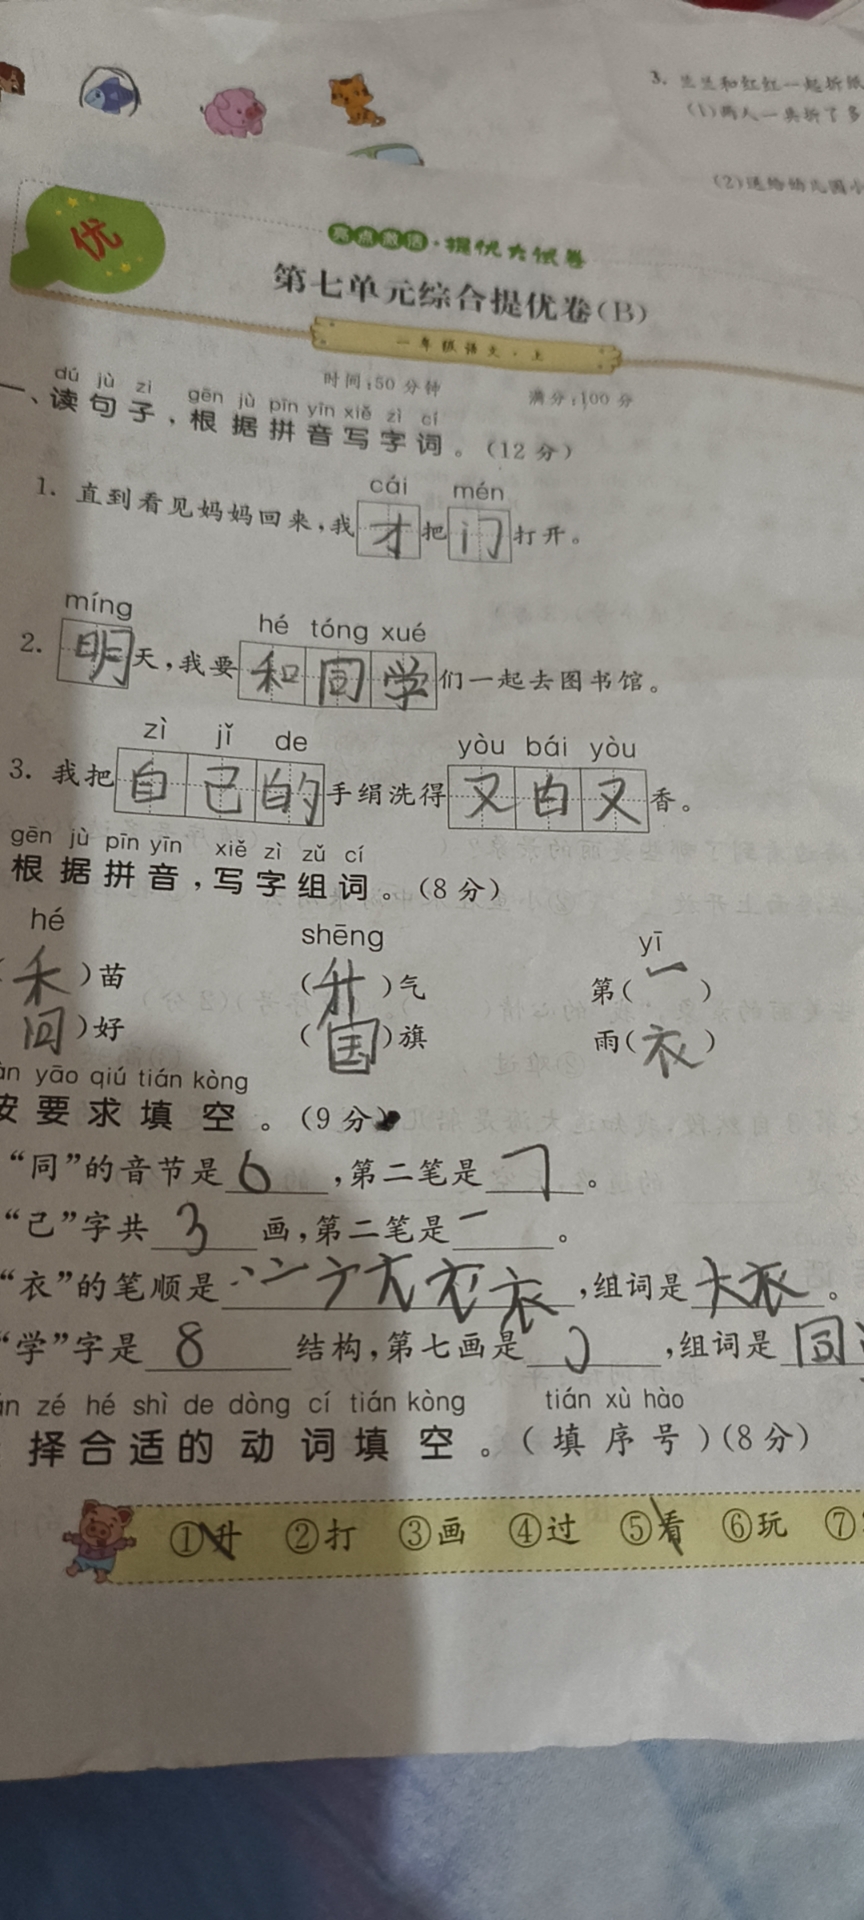 3. 兰兰和红红一起折纸
(1)两人一共折了多
(2)送给幼儿园小
优
亮点激活·提优大试卷
第七单元综合提优卷(B)
一年级语文·上
时间:50分钟 满分:100分
dú jù zi gēn jù pīn yīn xiě zì cí
一、读句子，根据拼音写字词。(12分)
cái mén
1. 直到看见妈妈回来，我才把门打开。
míng hé tóng xué
2. 明天，我要和同学们一起去图书馆。
zì jǐ de yòu bái yòu
3. 我把自己的手绢洗得又白又香。
gēn jù pīn yīn xiě zì zǔ cí
根据拼音，写字组词。(8分)
hé shēng yī
(禾)苗 (升)气 第(一)
回)好 (国)旗 雨(衣)
àn yāo qiú tián kòng
按要求填空。(9分)
“同”的音节是6，第二笔是㇆。
“己”字共3画，第二笔是一。
“衣”的笔顺是，组词是大衣。
“学”字是8结构，第七画是㇁，组词是同
án zé hé shì de dòng cí tián kòng tián xù hào
择合适的动词填空。(填序号)(8分)
①升 ②打 ③画 ④过 ⑤看 ⑥玩 ⑦